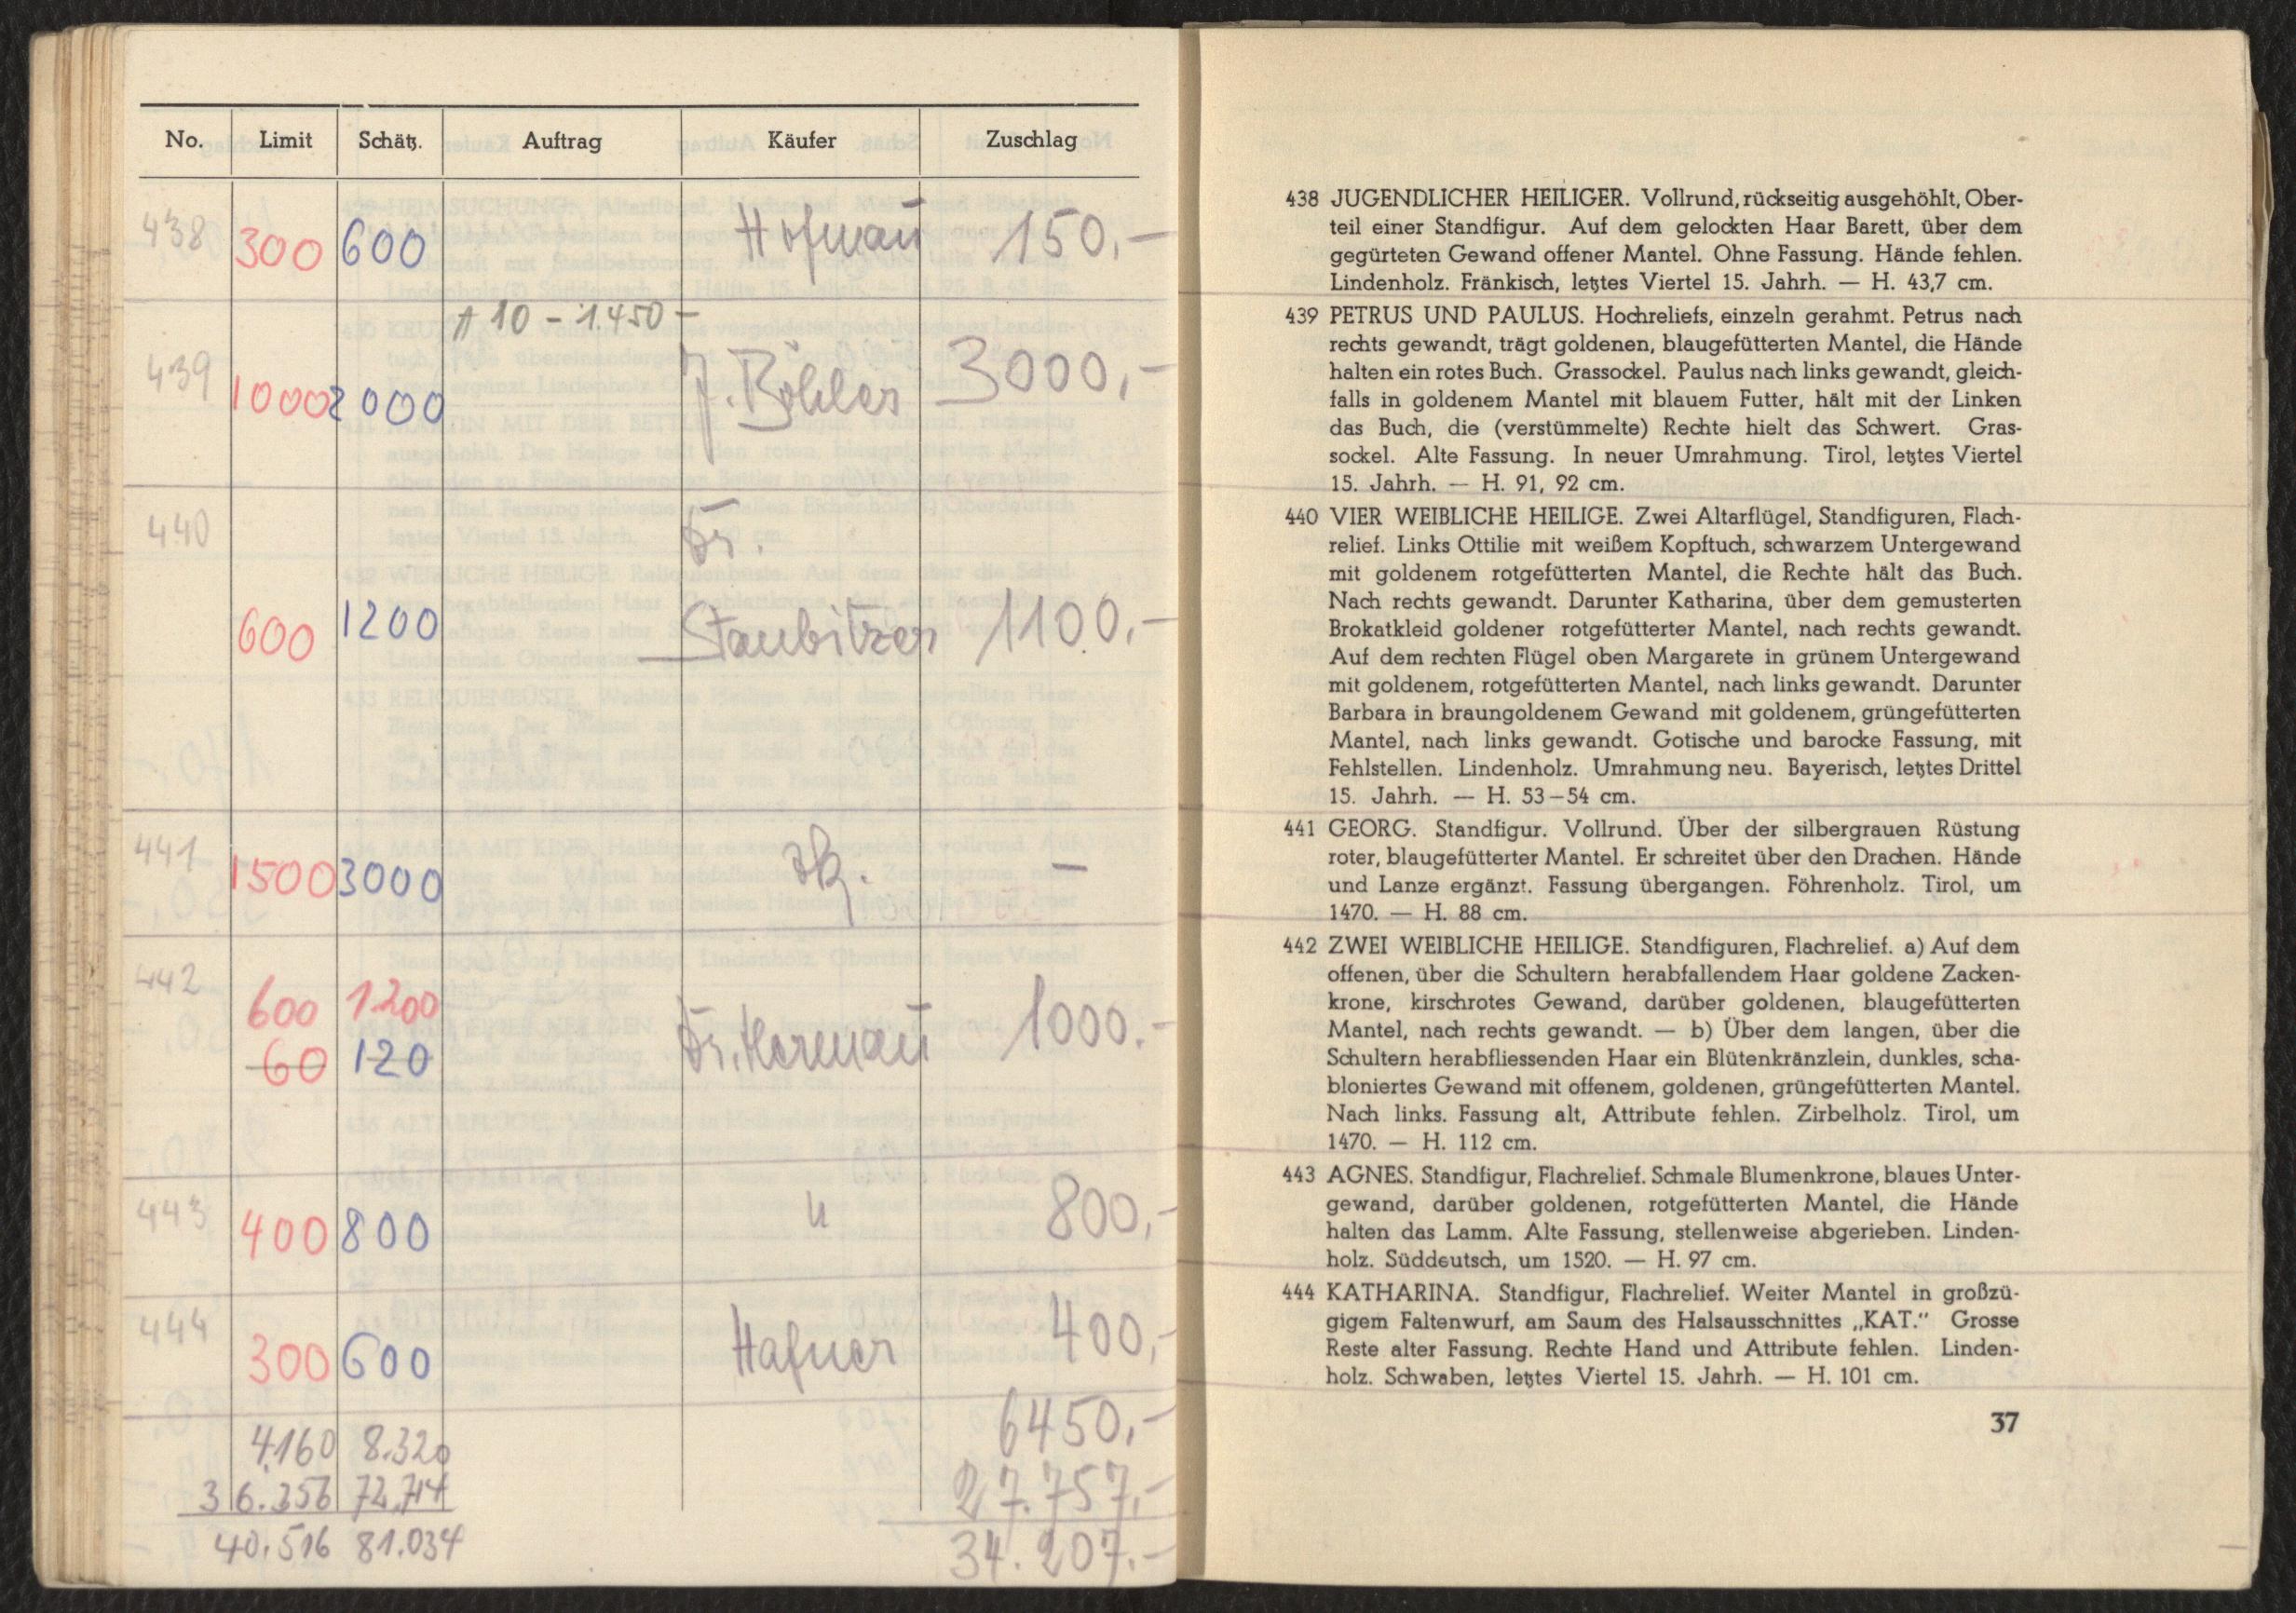 No. Limit Schätz. Auftrag Käufer Zuschlag
438 300 600 Hofmañ 150,–
A 10 – 1.450 –
439 1000 2000 J. Böhler 3000,–
440 Dr.
600 1200 Staubitzer 1100,–
441 1500 3000 zk. –
442
600 1200
60 120 Dr. Hermañ 1000.–
443 400 800 " 800,–
444 300 600 Hafner 400,–
4.160 8.320 6450,–
36.356 72.714 27.757,–
40.516 81.034 34.207.–
438 JUGENDLICHER HEILIGER. Vollrund, rückseitig ausgehöhlt, Ober-
teil einer Standfigur. Auf dem gelockten Haar Barett, über dem
gegürteten Gewand offener Mantel. Ohne Fassung. Hände fehlen.
Lindenholz. Fränkisch, letztes Viertel 15. Jahrh. — H. 43,7 cm.
439 PETRUS UND PAULUS. Hochreliefs, einzeln gerahmt. Petrus nach
rechts gewandt, trägt goldenen, blaugefütterten Mantel, die Hände
halten ein rotes Buch. Grassockel. Paulus nach links gewandt, gleich-
falls in goldenem Mantel mit blauem Futter, hält mit der Linken
das Buch, die (verstümmelte) Rechte hielt das Schwert. Gras-
sockel. Alte Fassung. In neuer Umrahmung. Tirol, letztes Viertel
15. Jahrh. — H. 91, 92 cm.
440 VIER WEIBLICHE HEILIGE. Zwei Altarflügel, Standfiguren, Flach-
relief. Links Ottilie mit weißem Kopftuch, schwarzem Untergewand
mit goldenem rotgefütterten Mantel, die Rechte hält das Buch.
Nach rechts gewandt. Darunter Katharina, über dem gemusterten
Brokatkleid goldener rotgefütterter Mantel, nach rechts gewandt.
Auf dem rechten Flügel oben Margarete in grünem Untergewand
mit goldenem, rotgefütterten Mantel, nach links gewandt. Darunter
Barbara in braungoldenem Gewand mit goldenem, grüngefütterten
Mantel, nach links gewandt. Gotische und barocke Fassung, mit
Fehlstellen. Lindenholz. Umrahmung neu. Bayerisch, letztes Drittel
15. Jahrh. — H. 53–54 cm.
441 GEORG. Standfigur. Vollrund. Über der silbergrauen Rüstung
roter, blaugefütterter Mantel. Er schreitet über den Drachen. Hände
und Lanze ergänzt. Fassung übergangen. Föhrenholz. Tirol, um
1470. — H. 88 cm.
442 ZWEI WEIBLICHE HEILIGE. Standfiguren, Flachrelief. a) Auf dem
offenen, über die Schultern herabfallendem Haar goldene Zacken-
krone, kirschrotes Gewand, darüber goldenen, blaugefütterten
Mantel, nach rechts gewandt. — b) Über dem langen, über die
Schultern herabfliessenden Haar ein Blütenkränzlein, dunkles, scha-
bloniertes Gewand mit offenem, goldenen, grüngefütterten Mantel.
Nach links. Fassung alt, Attribute fehlen. Zirbelholz. Tirol, um
1470. — H. 112 cm.
443 AGNES. Standfigur, Flachrelief. Schmale Blumenkrone, blaues Unter-
gewand, darüber goldenen, rotgefütterten Mantel, die Hände
halten das Lamm. Alte Fassung, stellenweise abgerieben. Linden-
holz. Süddeutsch, um 1520. — H. 97 cm.
444 KATHARINA. Standfigur, Flachrelief. Weiter Mantel in großzü-
gigem Faltenwurf, am Saum des Halsausschnittes „KAT.“ Grosse
Reste alter Fassung. Rechte Hand und Attribute fehlen. Linden-
holz. Schwaben, letztes Viertel 15. Jahrh. — H. 101 cm.
37